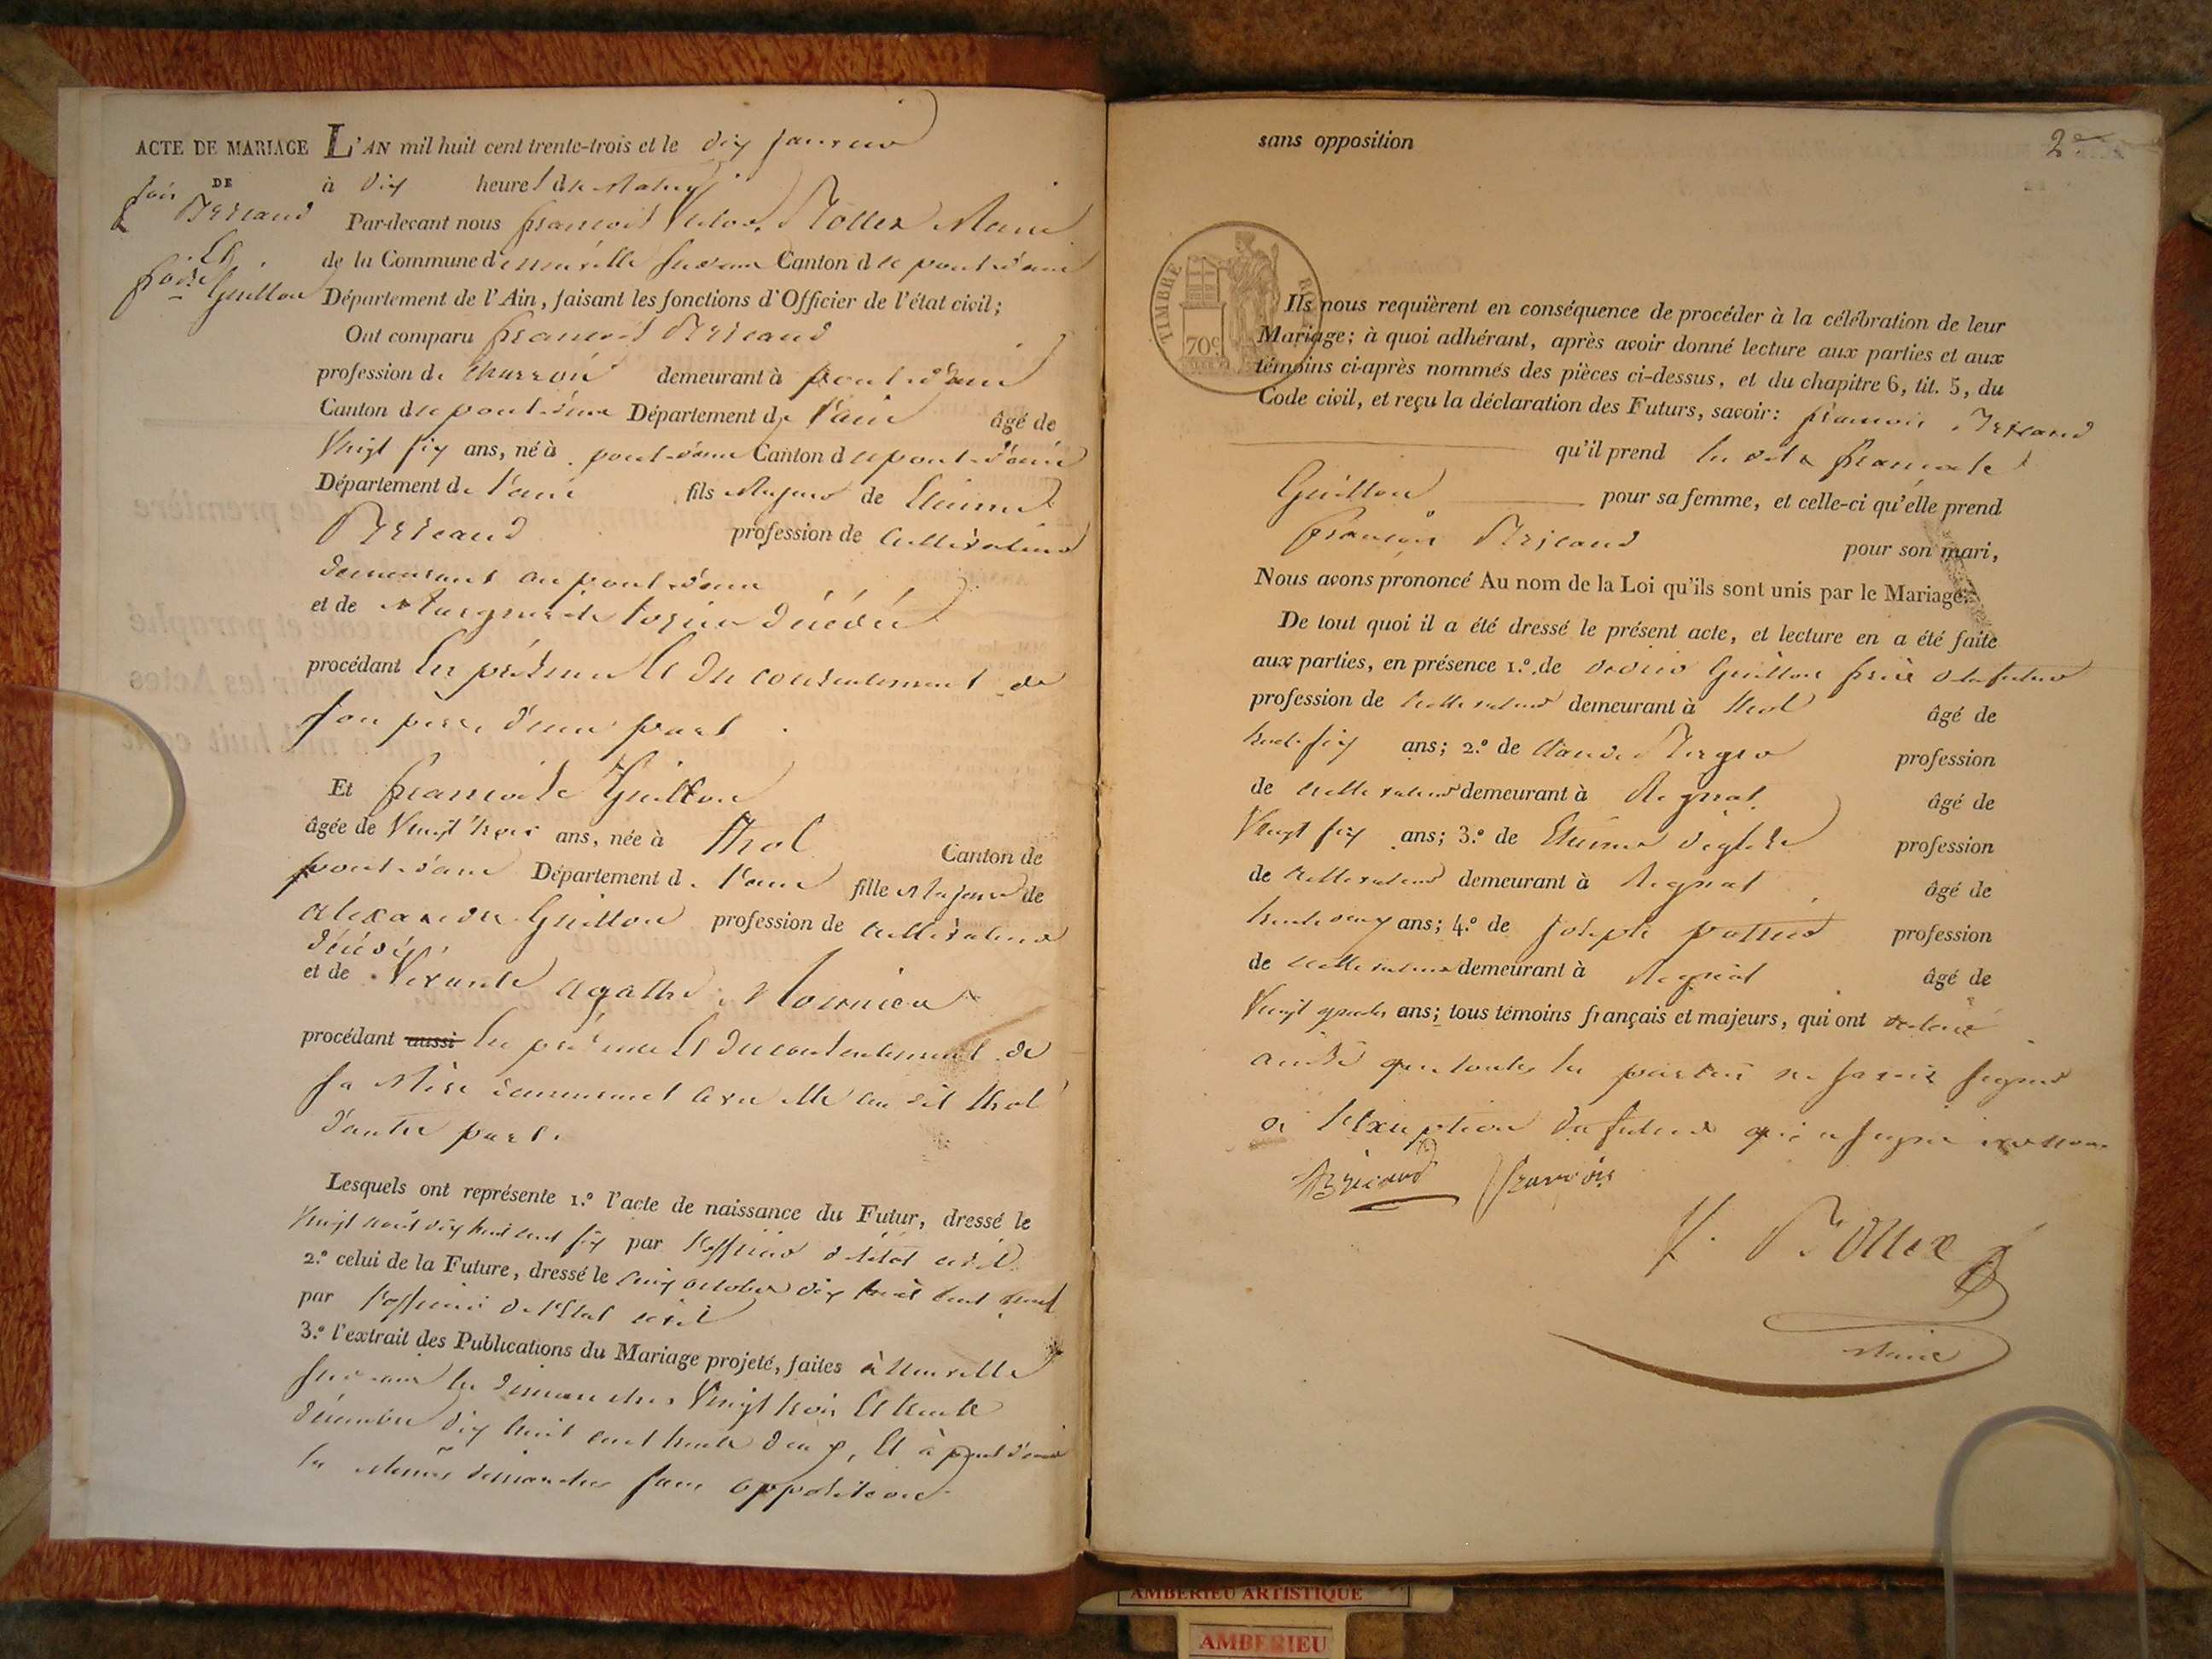 ACTE DE MARIAGE
DE
fois Bricaud
Et
foise Guillon
L'AN mil huit cent trente-trois et le dix janvier
à dix heures du Matin
Par-devant nous françois Victor Bollex Maire
de la Commune de neuville sur ain Canton de pont d'ain
Département de l'Ain, faisant les fonctions d'Officier de l'état civil;
Ont comparu françois Bricaud
profession de Charron demeurant à pont d'ain
Canton de pont d'ain Département de l'ain âgé de
Vingt six ans, né à pont d'ain Canton de pont d'ain
Département de l'ain fils Majeur de Etienne
Bricaud profession de Cultivateur
demeurant au pont d'ain
et de Marguerite décédée
procédant en présence et du consentement de
son père, d'une part
Et françoise Guillon
âgée de Vingt trois ans, née à Thol Canton de
pont d'ain Département de l'ain fille Majeure de
alexandre Guillon profession de Cultivateur
décédé
et de agathe Mounier
procédant aussi en présence et du consentement de
sa Mère demeurant avec elle au dit Thol
d'autre part.
Lesquels ont représente 1.º l'acte de naissance du Futur, dressé le
Vingt août dix huit cent six par l'officier de l'état civil
2.º celui de la Future, dressé le cinq octobre dix huit cent neuf
par l'officier de l'Etat civil
3.º l'extrait des Publications du Mariage projeté, faites à Neuville
sur ain les dimanches Vingt trois et trente
décembre dix huit cent trente deux, Et à pont d'ain
les mêmes dimanches sans opposition
sans opposition
2e
TIMBRE RO
70c
Ils nous requièrent en conséquence de procéder à la célébration de leur
Mariage; à quoi adhérant, après avoir donné lecture aux parties et aux
témoins ci-après nommés des pièces ci-dessus, et du chapitre 6, tit. 5, du
Code civil, et reçu la déclaration des Futurs, savoir: françois Bricaud
qu'il prend la dite françoise
Guillon pour sa femme, et celle-ci qu'elle prend
françois Bricaud pour son mari,
Nous avons prononcé Au nom de la Loi qu'ils sont unis par le Mariage.
De tout quoi il a été dressé le présent acte, et lecture en a été faite
aux parties, en présence 1.º de didier Guillon frère de la future
profession de cultivateur demeurant à thol âgé de
trente six ans; 2.º de Claude profession
de cultivateur demeurant à Rignat âgé de
Vingt six ans; 3.º de Etienne profession
de cultivateur demeurant à Rignat âgé de
trente deux ans; 4.º de joseph profession
de cultivateur demeurant à Rignat âgé de
Vingt quatre ans; tous témoins français et majeurs, qui ont déclaré
ainsi que toutes les parties ne savoir signer
à l'Exception du futur qui a signé avec nous
Bricaud françois
V. Bollex
Maire
AMBERIEU ARTISTIQUE
AMBERIEU